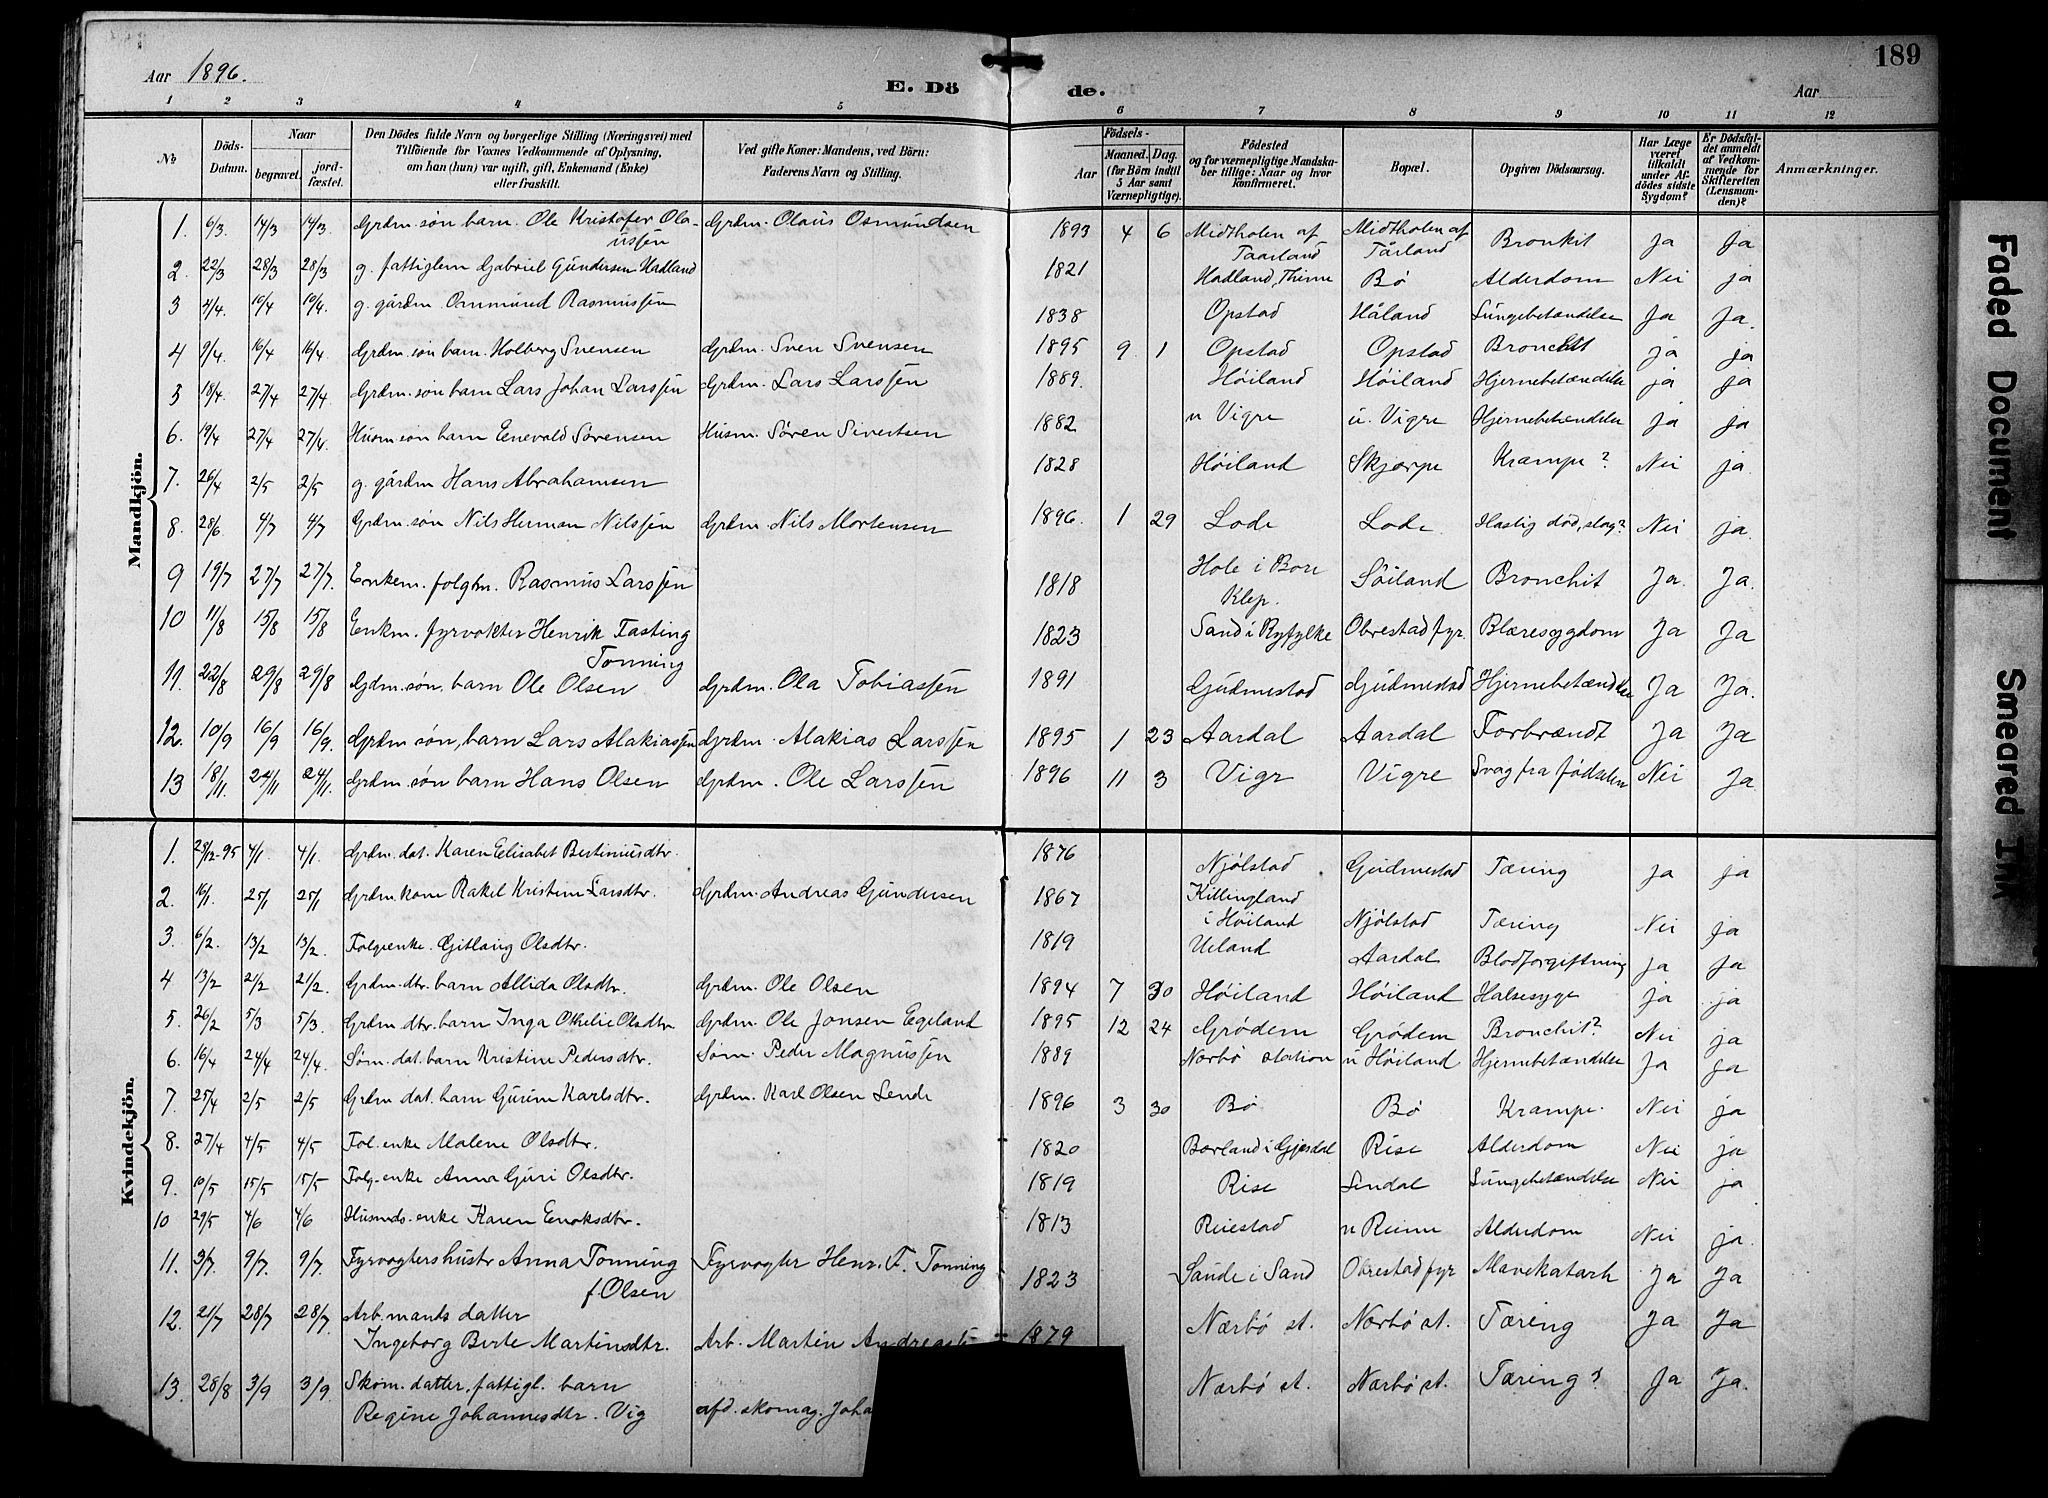 Aar 1896.
E. Dö de.
Aar
189
1 2 3 4 5 6 7 8 9 10 11 12
No
Döds-Datum.
Naar
begravet.
jord-fæstet.
Den Dödes fulde Navn og borgerlige Stilling (Næringsvei) med
Tilföiende for Voxnes Vedkommende af Oplysning,
om han (hun) var ugift, gift, Enkemand (Enke)
eller fraskilt.
Ved gifte Koner: Mandens, ved Börn:
Faderens Navn og Stilling.
Födsels-
Aar
Maaned. Dag.
(for Börn indtil
5 Aar samt
Værnepligtige).
Födested
og for værnepligtige Mandska-
ber tillige: Naar og hvor
konfirmeret.
Bopæl.
Opgiven Dödsaarsag.
Har Læge
været
tilkaldt
under Af-
dödes sidste
Sygdom?
Er Dödsfal-
det anmeldt
af Vedkom-
mende for
Skifteretten
(Lensman-
den)?
Anmærkninger.
Mandkjön.
1. 6/3 14/3 14/3 Grdm. søn barn. Ole Kristofer Ola-ussen Grdm. Olaus Osmundsen 1893 4 6 Midtholen af Taarland Midtholen af Tårland Bronkit Ja Ja
2. 22/3 28/3 28/3 g. fattiglem Gabriel Gundersen Hadland 1821 Hadland, Thime Bø Alderdom Nei ja
3 4/4. 10/4 10/4. g. gårdm Ommund Rasmussen 1838 Opstad Håland Lungebetændelse Ja Ja.
4 9/4. 16/4 16/4. Grdm. søn barn. Holberg Svensen Grdm. Sven Svensen 1895 9. 1 Opstad Opstad Bronchit ja ja
5 18/4. 27/4 27/4. Grdm. søn barn Lars Johan Larssen Grdm. Lars Larssen 1889. Høiland Høiland Hjernebetændelse ja ja
6. 19/4 27/4 27/4. Husm. søn barn Enevald Sørensen Husm. Søren Sivertsen 1882 n Vigre u. Vigre Hjernebetændelse ja ja
7. 26/4 2/5 2/5 g. gårdm Hans Abrahamsen 1828 Høiland Skjærpe Krampe? Nei ja.
8. 28/6 4/7 4/7 Grdm. søn Nils Herman Nilssen Grdm. Nils Mortensen 1896. 1 29 Lode Lode Hastig død, slag? Nei ja
9 19/7 27/7 27/7. Enkem. folgm. Rasmus Larssen 1818 Hole i Bore Klep. Søiland Bronchit Ja. Ja.
10 11/8 15/8 15/8 Enkm. fyrvokter Henrik Fasting Tonning 1823 Sand i Ryfylke Obrestad fyr. Blæresygdom Ja Ja
11. 22/8 29/8 29/8 Gdm. søn, barn Ole Olsen Grdm. Ola Tobiassen 1891 Gudmestad Gudmestad Hjernebetændelse Ja Ja.
12. 10/9 16/9 16/9. Grdm. søn, barn Lars Alakiassen Grdm. Alakias Larssen 1895 1 23 Aardal Aardal Forbrændt Ja Ja
13 18/11. 24/11 24/11. Grdm. søn barn Hans Olsen Grdm. Ole Larssen 1896 11 3 Vigr Vigre Svag fra fødselen Nei Ja
Kvindekjön.
1. 28/12-95 4/1. 4/1. Grdm. dat. Karen Elisabet Bertiniusdtr. 1876 Njølstad Gudmestad Tæring ja ja
2. 16/1. 25/1 25/1 Grdm. kone Rakel Kristine Larsdtr. Grdm. Andreas Gundersen 1867 Killingland i Høiland Njølstad Tæring Nei ja
3. 6/2. 13/2 13/2 Folgeenke. Gitlaug Olsdtr. 1819 Ueland Aardal Blodforgiftning ja ja
4 13/2 21/2 21/2. Grdm. dtr. barn Allida Olsdtr. Grdm. Ole Olsen 1894 7 30 Høiland Høiland Halsesyge ja ja
5. 26/2 5/3 5/3. Grdm. dtr. barn Inga Othelie Olsdtr Grdm. Ole Jonsen Egeland 1895 12 24 Grødem Grødem Bronchit? Nei ja
6. 16/4 24/4 24/4. Søm. dat. barn Kristine Pedersdtr. Søm. Peder Magnussen 1889 Nærbø station n Høiland Hjernebetændelse Ja ja
7. 25/4 2/5 2/5 Grdm dat. barn Gurine Karlsdtr. Grdm. Karl Olsen Lende 1896 3 30 Bø Bø Krampe. Nei ja
8. 27/4 4/5 4/5 Fol. enke Malene Olsdtr. 1820 Børland i Gjesdal Rise Alderdom Nei ja
9. 10/5 15/5 15/5 Folg. enke Anna Guri Olsdtr. 1819 Rise Lendal Lungebetændelse Nei ja
10 29/5 4/6 4/6 Husmds. enke Karen Enoksdtr. 1813 Reiestad n Reime Alderdom Nei ja.
11. 3/7. 9/7. 9/7. Fyrvogters hustr Anna Tonning f. Olsen Fyrvogter Henr. F. Tonning 1823 Sande i Sand Obrestad fyr Mavekatarh Ja Ja
12. 21/7 28/7 28/7. Arb. mands datter
Ingeborg Berte Martinsdtr. Arb. Martin 1879 Nærbø st. Nærbø st. Tæring Ja Ja
13. 28/8 3/9 3/9. Skom. datter, fattigl. barn
Regine Johannesdtr. Vig afd. skomag. Joha Nærbø st. Nærbø st. Tæring? Ja Ja.
Faded Document
Smeared Ink